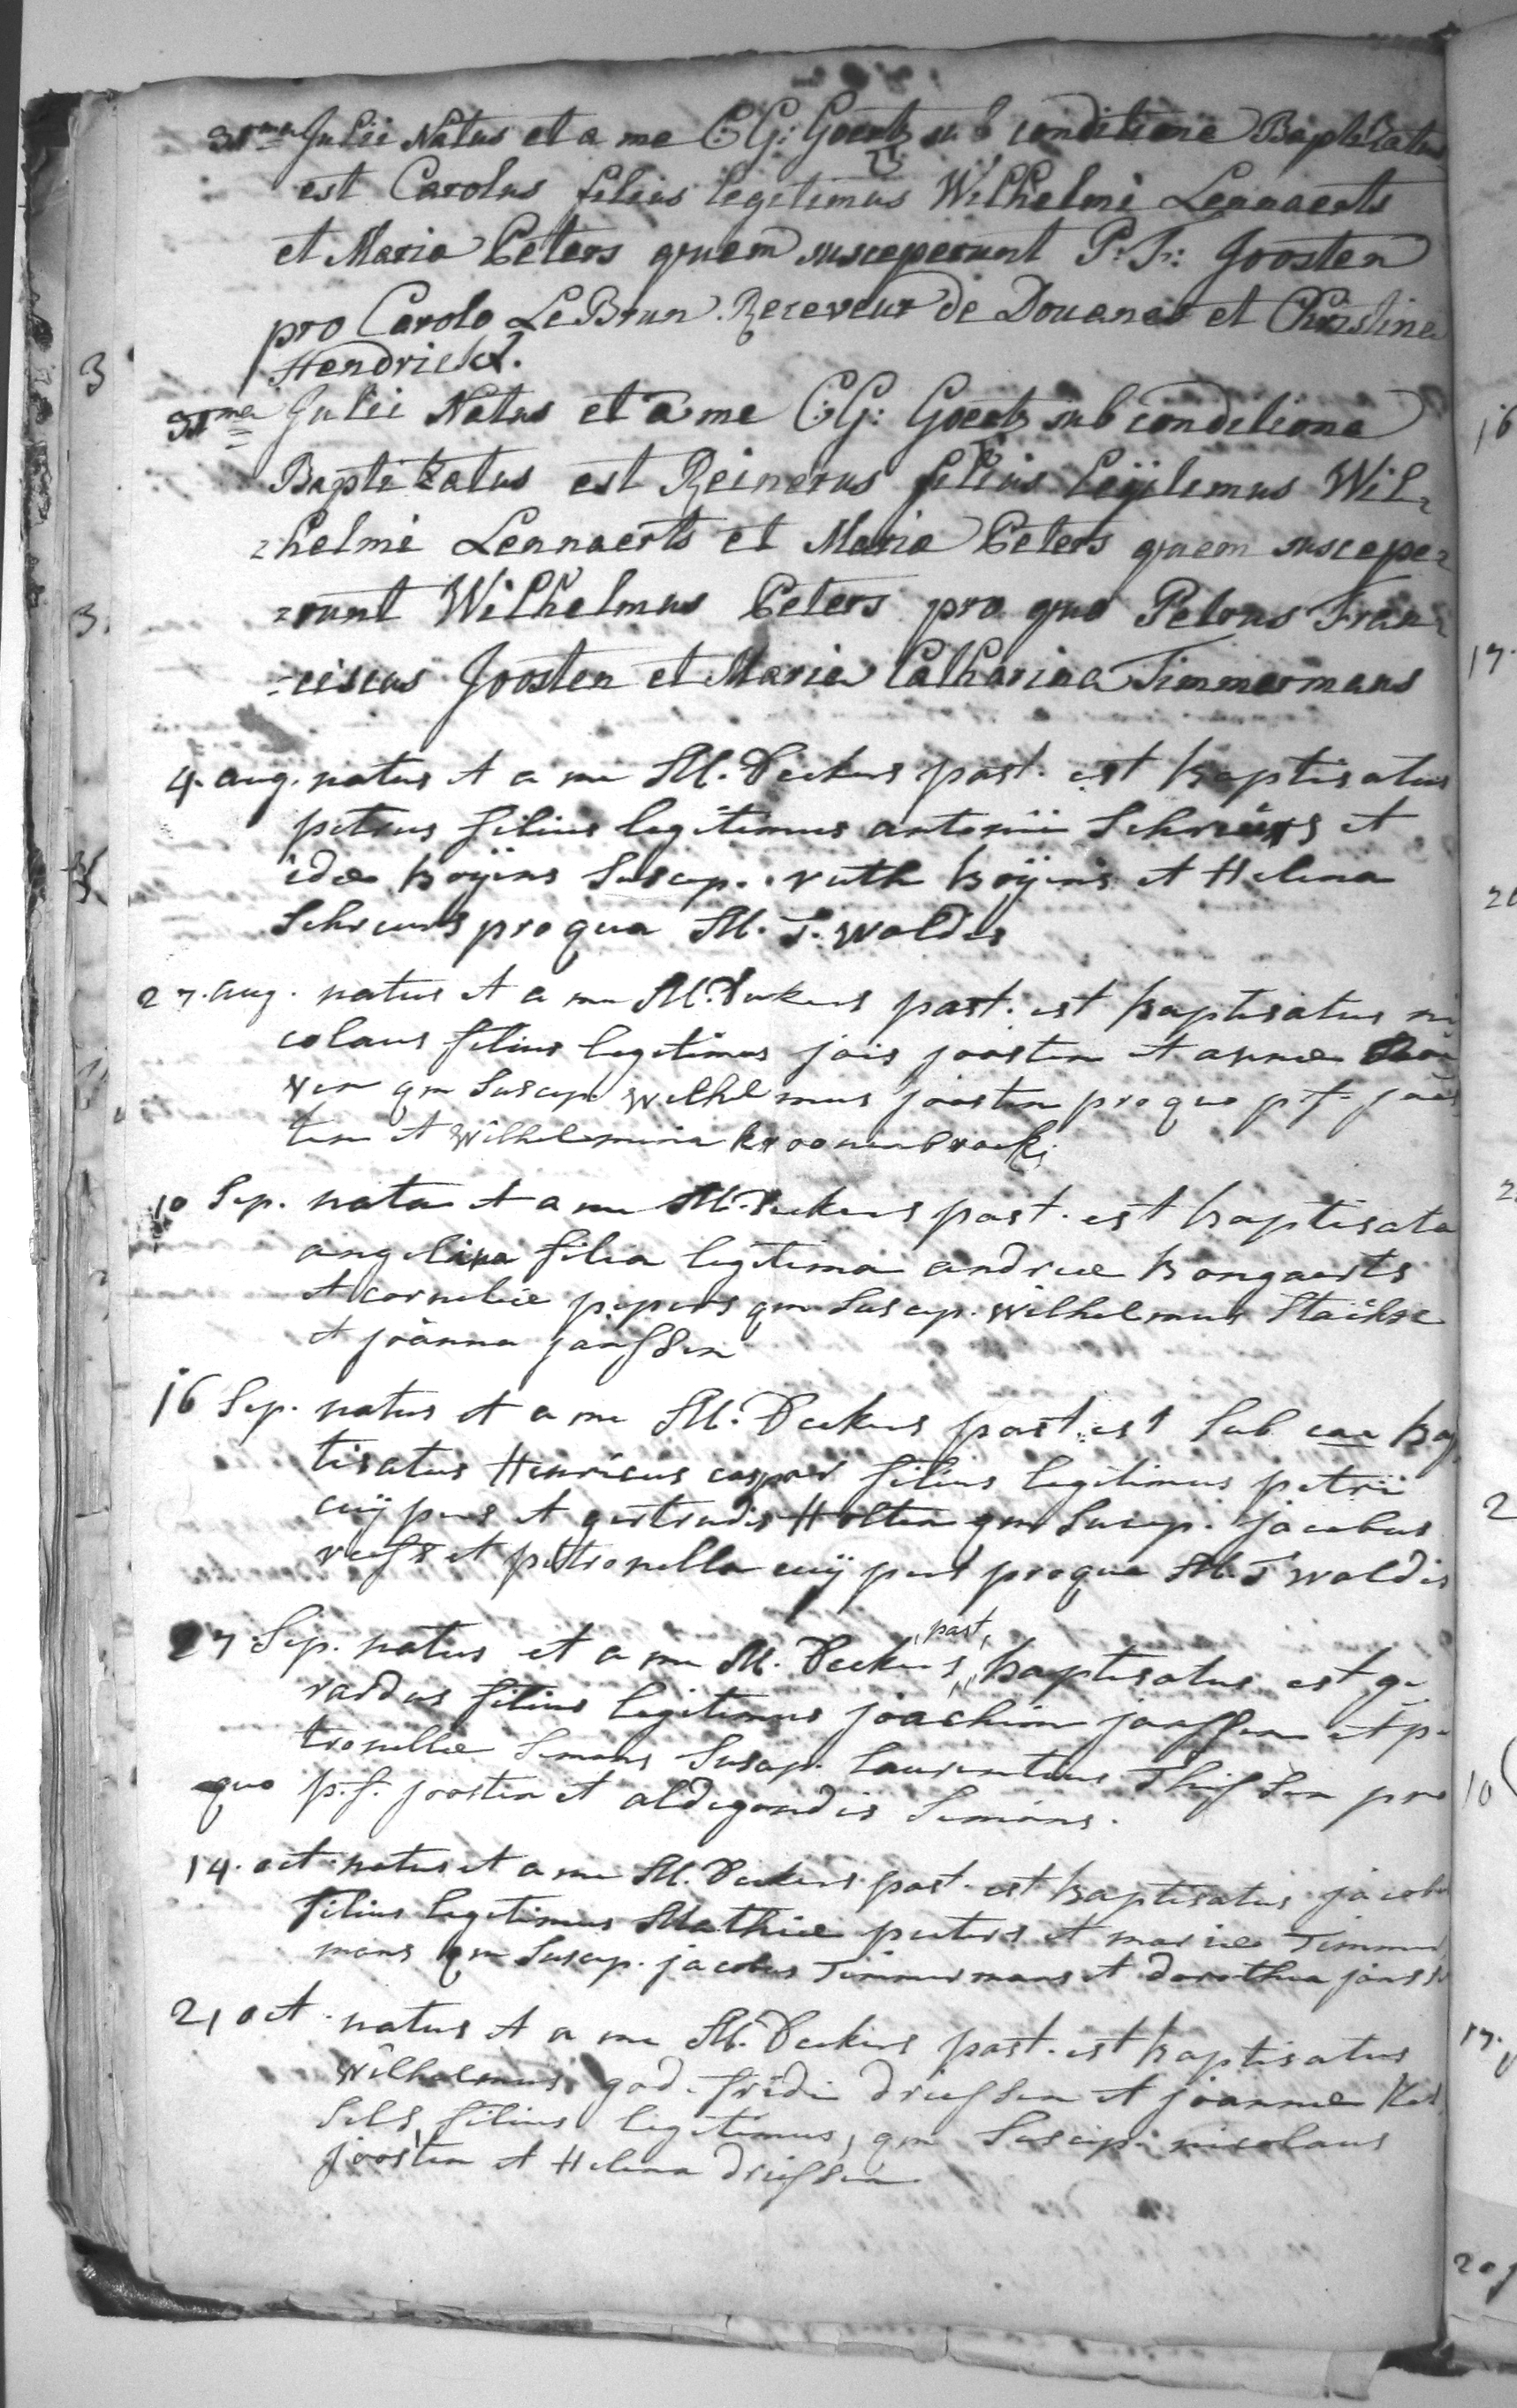 31ma Julii Natus et a me C:G: Goertz sub conditione Baptizatus
est Carolus filius legitimus Wilhelmi Lennaerts
et Maria Peters quem susceperunt P: Fr: Joosten
pro Carolo LeBrun Receveur de Douanes et Christina
Hendrickx.
31ma Julii Natus et a me C:G: Goertz sub conditione
Baptizatus est Reinerus filius legitimus Wil-
-helmi Lennaerts et Maria Peters quem suscepe-
-runt Wilhelmus Peters pro quo Petrus Fran-
-ciscus Joosten et Maria Catharina Timmermans
4. aug. natus et a me M. Deckers past. est baptisatus
petrus filius legitimus antonii Schreurs et
idæ boÿens Suscep. ruth boÿens et Helena
Schreurs pro qua M. T. Woldis
27. aug. natus et a me M. Deckers past. est baptisatus ni
colaus filius legitimus jois joosten et annæ
ven qm Suscep. Wilhelmus joosten pro quo p f joos
ten et Wilhelmina kroonenbroeks
10 Sep. nata et a me M. Deckers past. est baptisata
angelina filia legitima andreæ bongaerts
et corneliæ pepers qm Suscep. Wilhelmus
et joanna janssen
16 Sep. natus et a me M. Deckers past. est Sub cae bap
tisatus Henricus casper filius legitimus petri
cuÿpers et gertrudis Holten qm Suscep. jacobus
et petronella cuÿpers pro qua M. T woldis
27 Sep. natus et a me M. Deckers past baptisatus est ge
rardus filius legitimus joachim janssen et pe
tronellæ Simons Suscep. laurentius Thissen pro
quo p. f. joosten et aldegondis Simons.
14. oct natus et a me M. Deckers past. est baptisatus jacobus
filius legitimus Mathiæ peeters et mariæ Timmer
mans qm Suscep. jacobus Timmermans et dorothea janss
21 oct. natus et a me M. Deckers past. est baptisatus
Wilhelmus godefridi driessen et joannæ
Sels filius legitimus, qm Suscep. nicolaus
joosten et Helena driessen